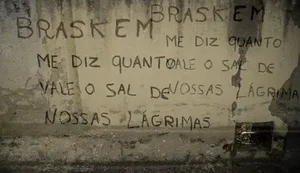 BRASKEM
ME DIZ QUANTO
VALE O SAL DE
NOSSAS LÁGRIMAS
BRASKEM
ME DIZ QUANTO
VALE O SAL DE
NOSSAS LÁGRIMA